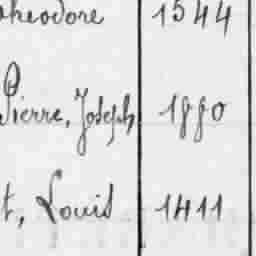 theodore 1544
Pierre, Joseph 1880
t, Louis 1411